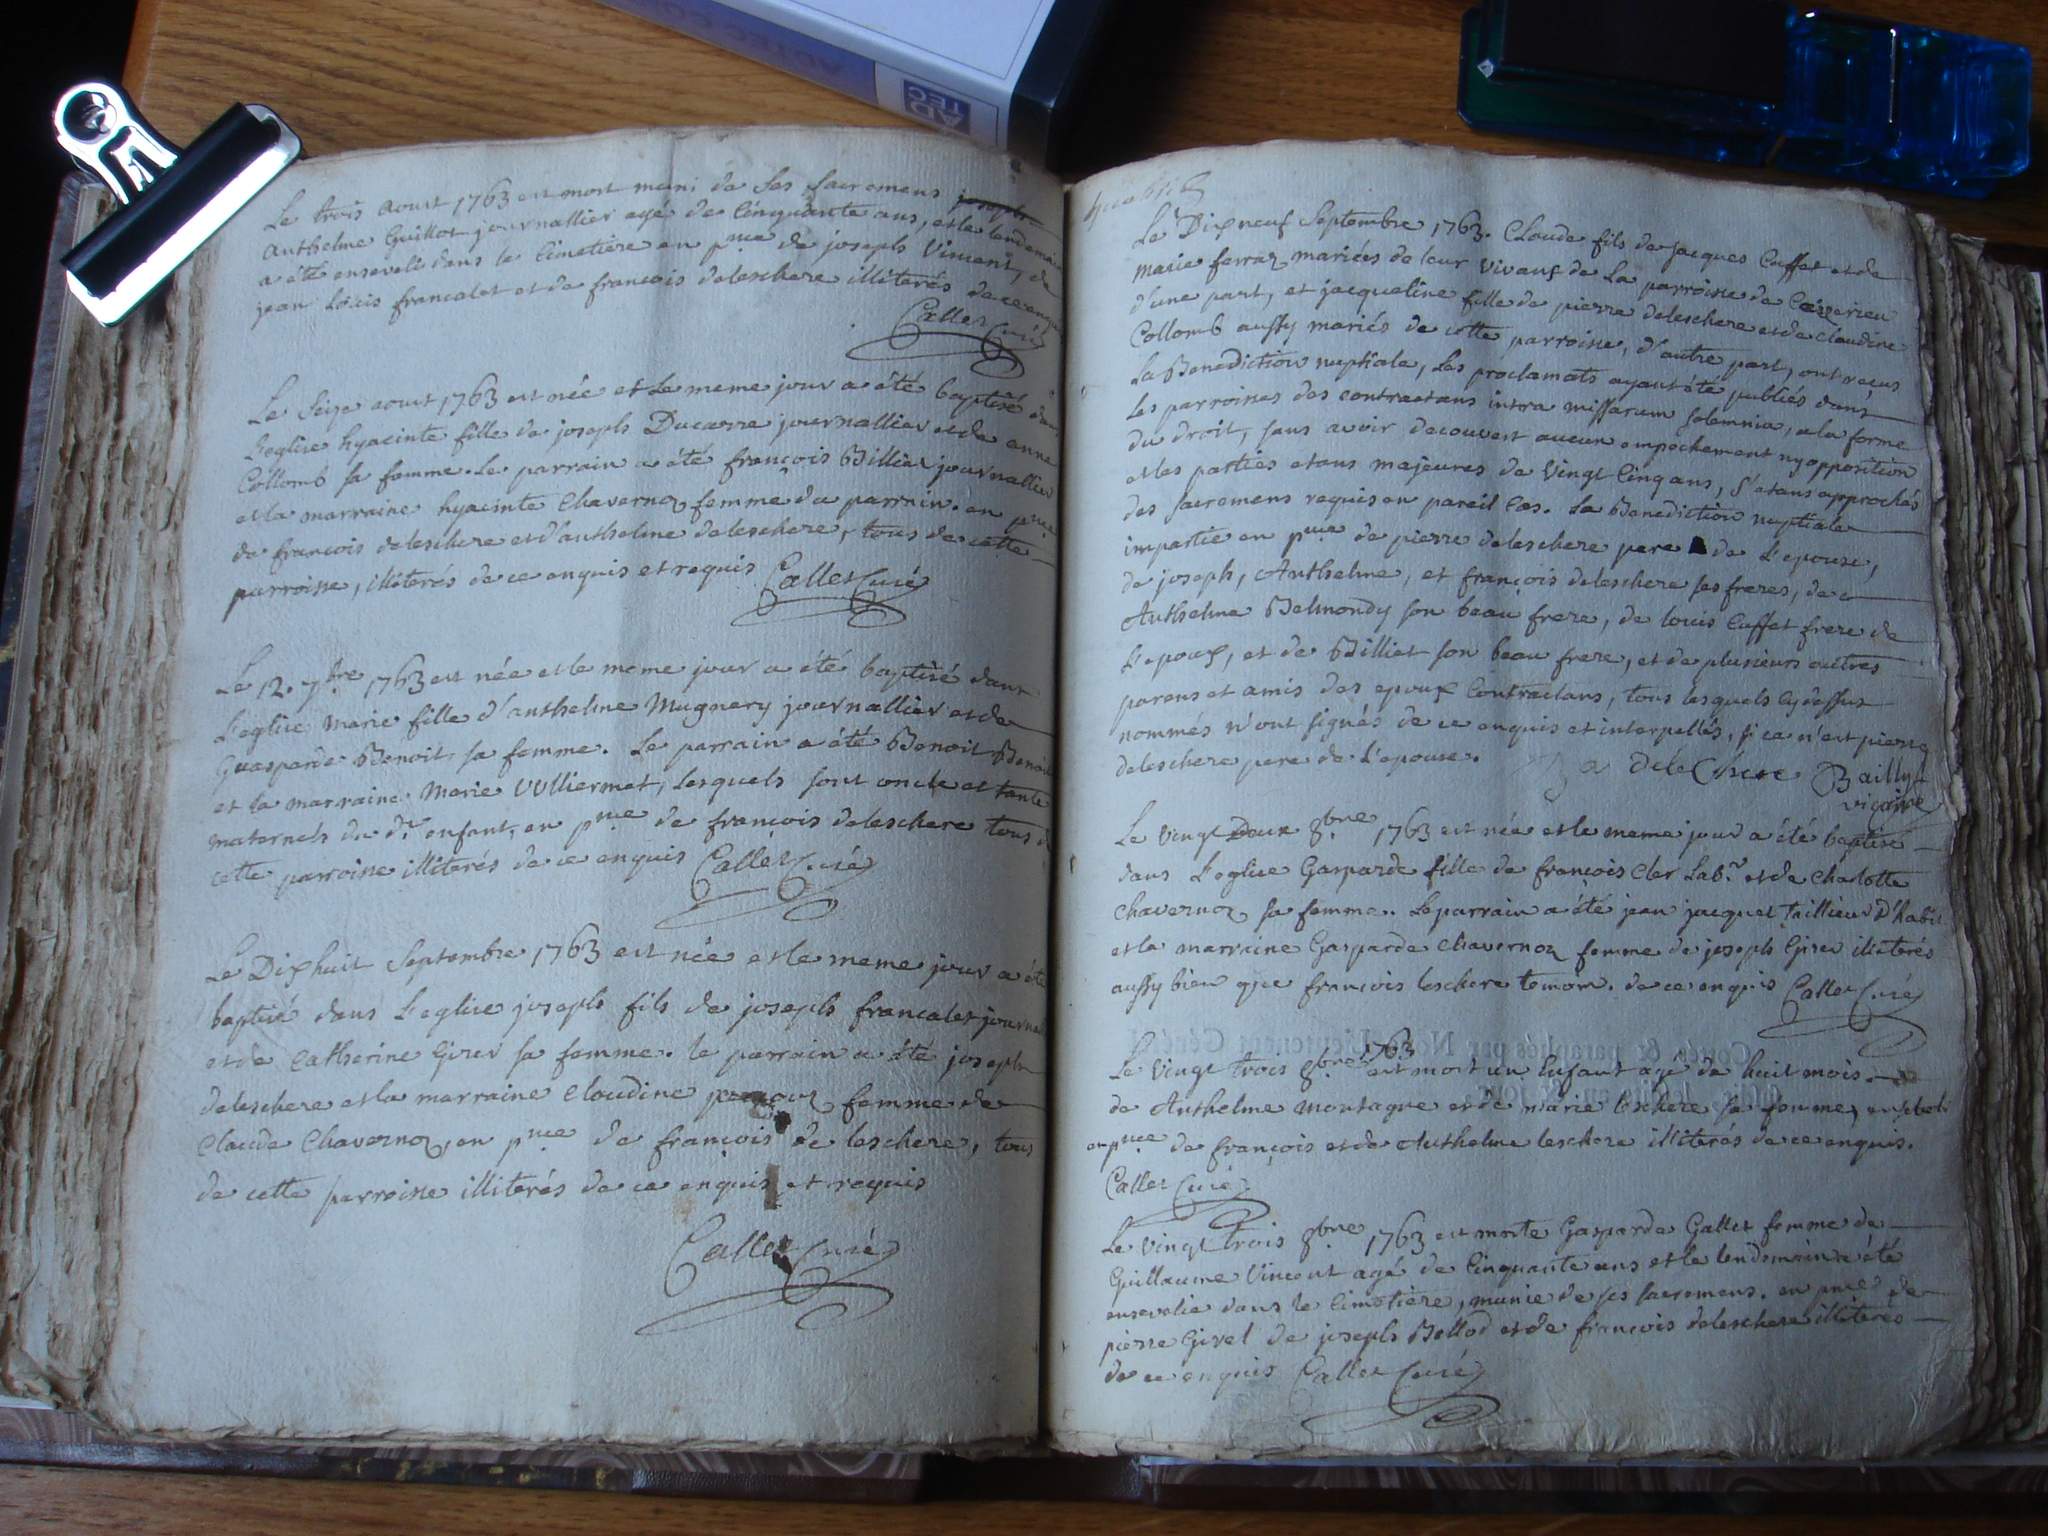 Le trois aoust 1763 est mort muni de ses sacremens joseph
Anthelme Guillot journallier agé de Cinquante ans, et le lendemain
a été enseveli dans le Cimetière en pnce de joseph Vincent, de
jean Loüis francalet et de françois deleschere illiterés de ce enquis
Callet Curé
Le Seize aoust 1763 est née et le meme jour a été baptisé dans
l'eglise hyacinte fille de joseph Ducarre journallier et de anne
Collomb sa femme. Le parrain a été françois Billiet journallier
et la marraine hyacinte Chavernoz femme du parrain. en pnce
de françois deleschere et d'anthelme deleschere, tous de cette
parroisse, illiterés de ce enquis et requis Callet Curé
Le 12. 7bre 1763 est née et le meme jour a été baptisé dans
L'eglise Marie fille d'anthelme Mugnery journallier et de
Guasparde Benoit sa femme. Le parrain a été Benoit Benoit
et la marraine Marie Vulliermet, Lesquels sont oncle et tante
maternels du dt enfant, en pnce de françois deleschere tous de
cette parroisse illiterés de ce enquis Callet Curé
Le Dixhuit Septembre 1763 est née et le meme jour a été
baptisé dans L'eglise joseph fils de joseph francalet journa
et de Catherine Girer sa femme. le parrain a été joseph
deleschere et la marraine Claudine femme de
Claude Chavernoz, en pnce de françois de leschere, tous
de cette parroisse illiterés de ce enquis et requis
Callet Curé
Le Dixneuf Septembre 1763. Claude fils de Jacques Cuffet et de
Marie ferraz mariées de leur vivant de La parroisse de Ceyzerieu
d'une part, et jacqueline fille de pierre deleschere et de Claudine
Collomb aussy mariés de cette parroisse, d'autre part, ont reçus
La Benediction nuptiale, Les proclamats ayant été publiés dans
Les parroisses des contractans intra missarum solemnia, a la forme
du droit, sans avoir decouvert aucun empechement ny opposition
et les parties etans majeures de Vingt Cinq ans, s'etans approchés
des sacremens requis en pareil Cas. La Benediction nuptiale
impartie en pnce de pierre deleschere pere de L'epouse,
de joseph, Anthelme, et françois deleschere ses freres, de
Anthelme Belmondy son beau frere, de louis Cuffet frere de
L'epoux, et de Billiet son beau frere, et de plusieurs autres
parens et amis des epoux Contractans, tous lesquels cy dessus
nommés n'ont signés de ce enquis et interpellés, si ce n'est pierre
deleschere pere de L'epouse. deleChere Bailly
vicaire
Le Vingt Deux 8bre 1763 est née et le meme jour a été baptisé
dans L'eglise Gasparde fille de françois Cler Labr et de Charlotte
Chavernoz sa femme. Le parrain a été jean jacquet taillieur d'habit
et la marraine Gasparde Chavernoz femme de joseph Girer illiterés
aussy bien que françois leschere temoin. de ce enquis Callet Curé
Le Vingt trois 8bre 1763 est mort un Enfant agé de huit mois
de Anthelme Montagne et de Marie leschere sa femme, enseveli
en pnce de françois et de Anthelme leschere illiterés de ce enquis.
Callet Curé
Le Vingt trois 8bre 1763 est morte Gasparde Gallet femme de
Guillaume Vincent agé de Cinquante ans et le lendemain a été
ensevelie dans le Cimetière, munie de ses sacremens. en pnce de
pierre Girel de joseph Bollod et de françois deleschere illiterés
de ce enquis Callet Curé